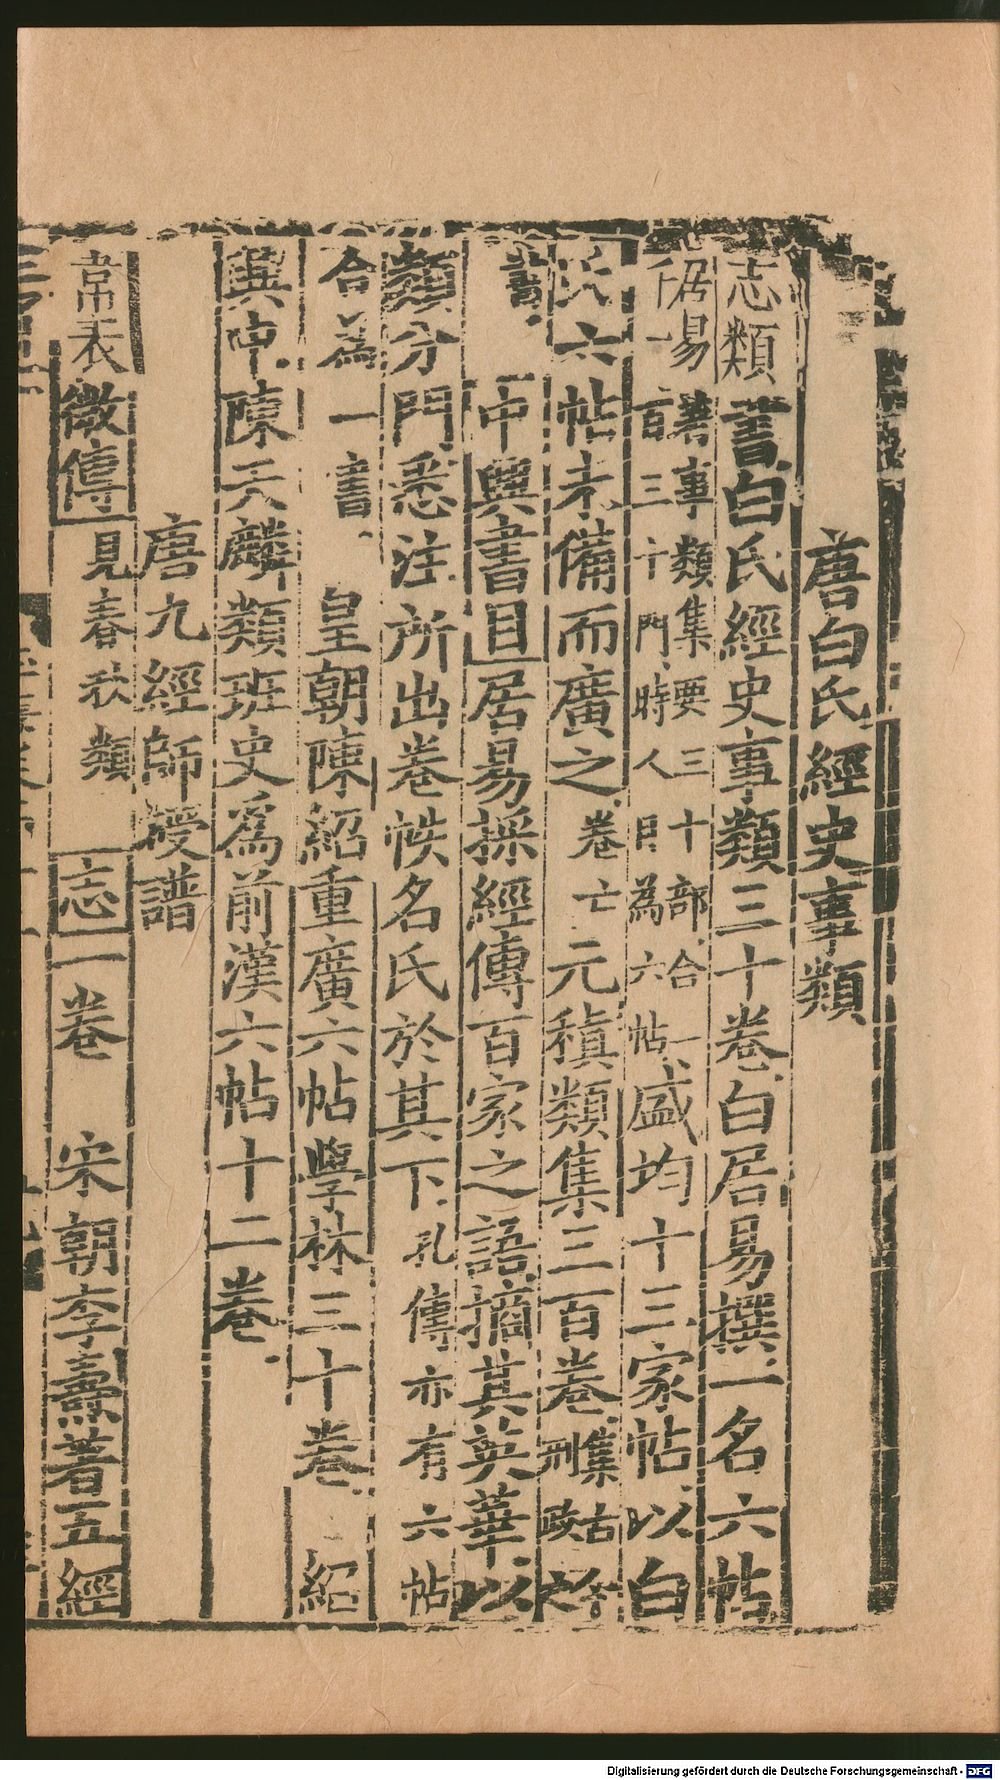 唐白氏經史事類
志類書白氏經史事類三十卷白居易撰一名六帖
居易著事類集要三十部合一
千一百三十門時人目為六帖盛均十三家帖以白
氏六帖未備而廣之卷亡元稹類集三百卷集古今
刑政之
書中興書目居易採經傳百家之語摘其英華以
類分門悉注所出卷帙名氏於其下孔傳亦有六帖
合為一書皇朝陳紹重廣六帖學林三十卷紹
興中陳天麟類班史為前漢六帖十二卷
唐九經師授譜
韋表微傳見春秋類志一卷宋朝李燾著五經
Digitalisierung gefördert durch die Deutsche Forschungsgemeinschaft - DFG